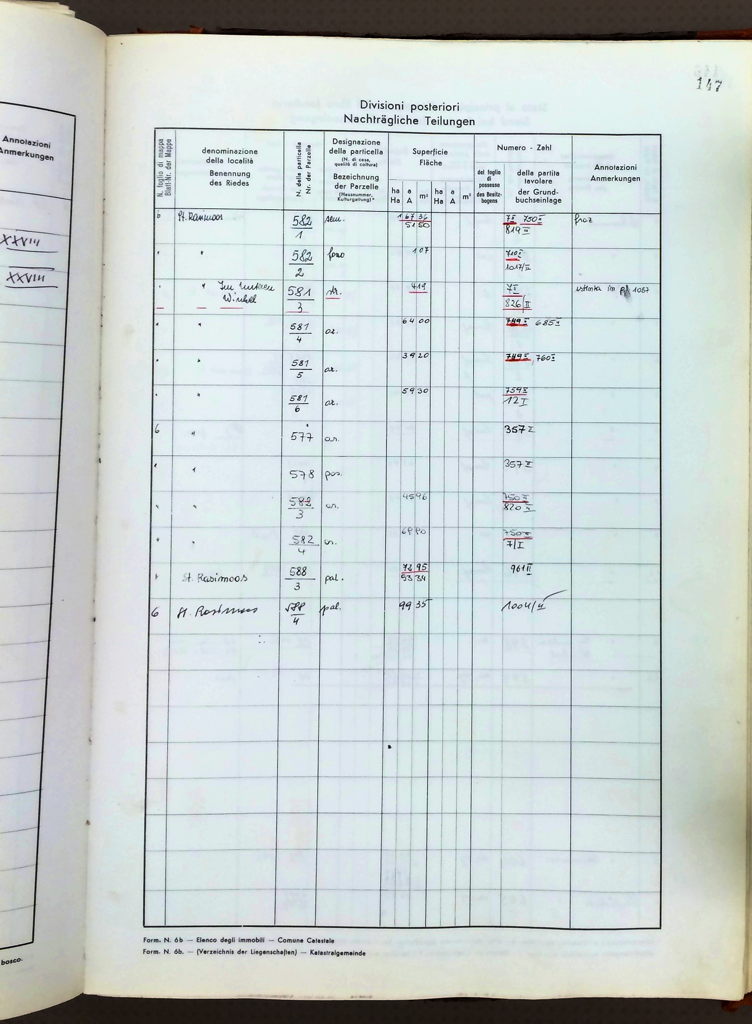 Annotazioni
Anmerkungen
XXVIII
XXVIII
bosco.
147
Divisioni posteriori
Nachträgliche Teilungen
N. foglio di mappa
Blatt-Nr. der Mappe
denominazione
della località
Benennung
des Riedes
N. della particella
Nr. der Parzelle
Designazione
della particella
(N. di casa,
qualità di coltura)
Bezeichnung
der Parzelle
(Hausnummer,
Kulturgattung)
Superficie
Fläche
ha a m² ha a m²
Ha A Ha A
Numero - Zahl
del foglio
di
possesso
des Besitz-
bogens
della partita
tavolare
der Grund-
buchseinlage
Annotazioni
Anmerkungen
6 St. Rasimoos 582/1 1 67 36 7I 750I
51 50 819 II
" 582/2 1 07 710I
1017/II
" " Im unteren Winkel 581/3 419 7I
826/II
" 581/4 ar. 64 00 749I 685I
" 581/5 ar. 39 20 749I, 760I
" 581/6 ar. 59 30 759I
12 I
6 " 577 ar. 357 I
" 578 357 I
" 582/3 ar. 45 96 750I
820 II
" 582/4 750I
7/I
" St. Rasimoos 588/3 pal. 72 95 961 II
53 34
6 St. Rasimoos 588/4 pal. 99 35 1004/II
Form. N. 6b — Elenco degli immobili — Comune Catastale
Form. N. 6b. — (Verzeichnis der Liegenschaften) — Katastralgemeinde